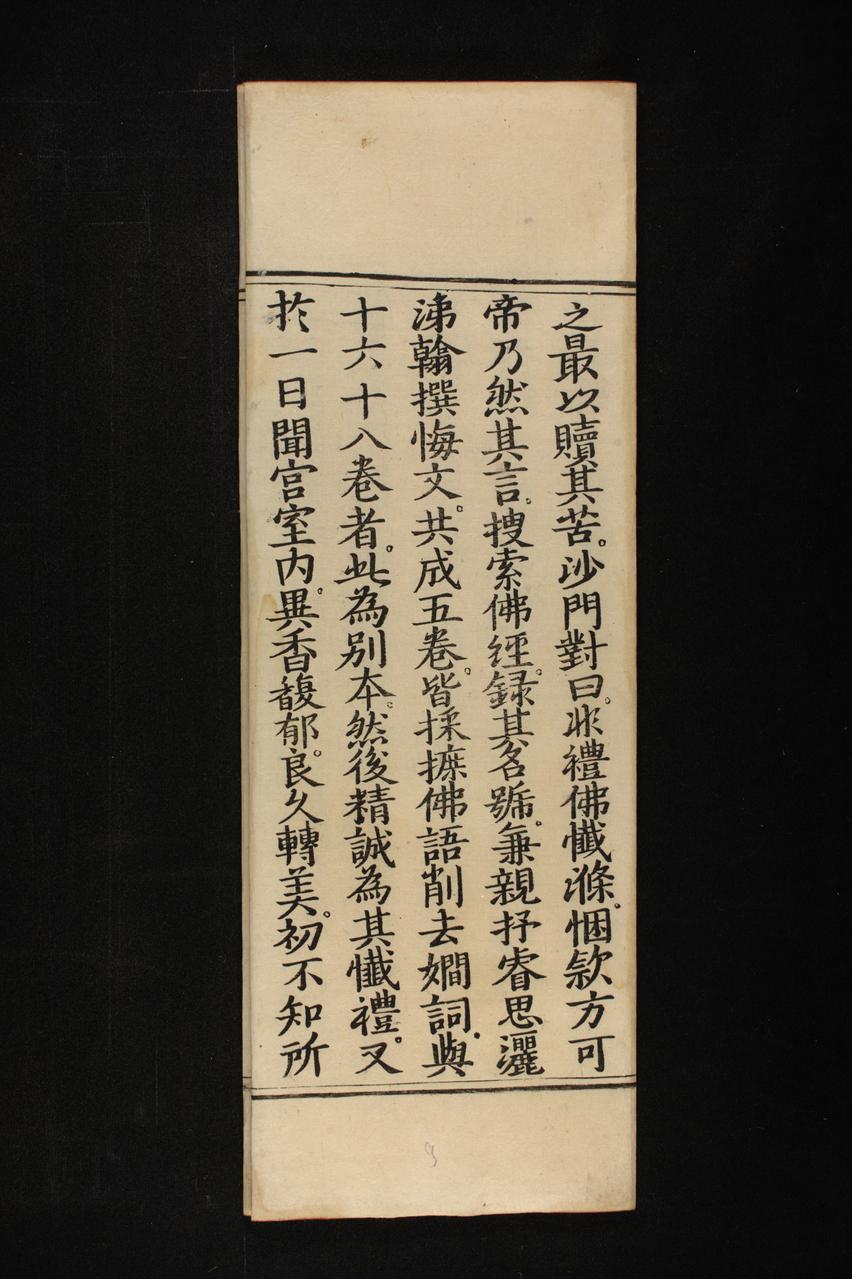 之最以贖其苦。沙門對曰。非禮佛懺滌。悃欵方可
帝乃然其言。搜索佛經。録其名號。兼親抒睿思灑
涕翰撰悔文。共成五卷。皆採摭佛語削去嫺詞。與
十六十八卷者。此為別本。然後精誠為其懺禮。又
扵一日聞宮室内。異香馥郁。良久轉美。初不知所